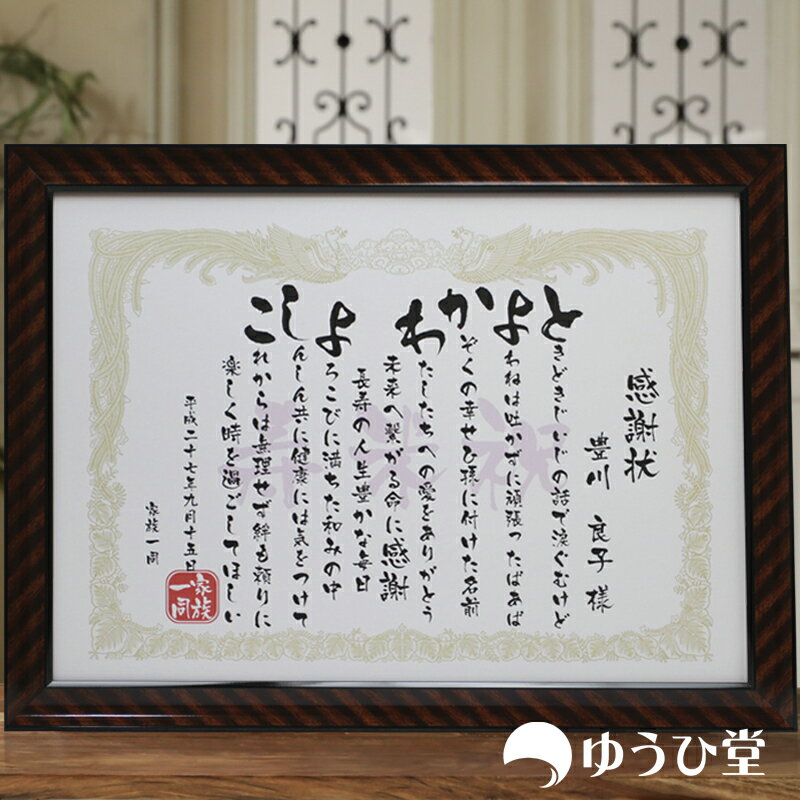 感謝状
豊川 良子 様
ときどきじいじの話で涙ぐむけど
よわねは吐かずに頑張ったばあば
かぞくの幸せひ孫に付けた名前
わたしたちへの愛をありがとう
未来へ繋がる命に感謝
長寿の人生豊かな毎日
よろこびに満ちた和みの中
しんしん共に健康には気をつけて
これからは無理せず絆も頼りに
楽しく時を過ごしてほしい
平成二十七年九月十五日
家族一同
家族一同
祝米寿
ゆうひ堂